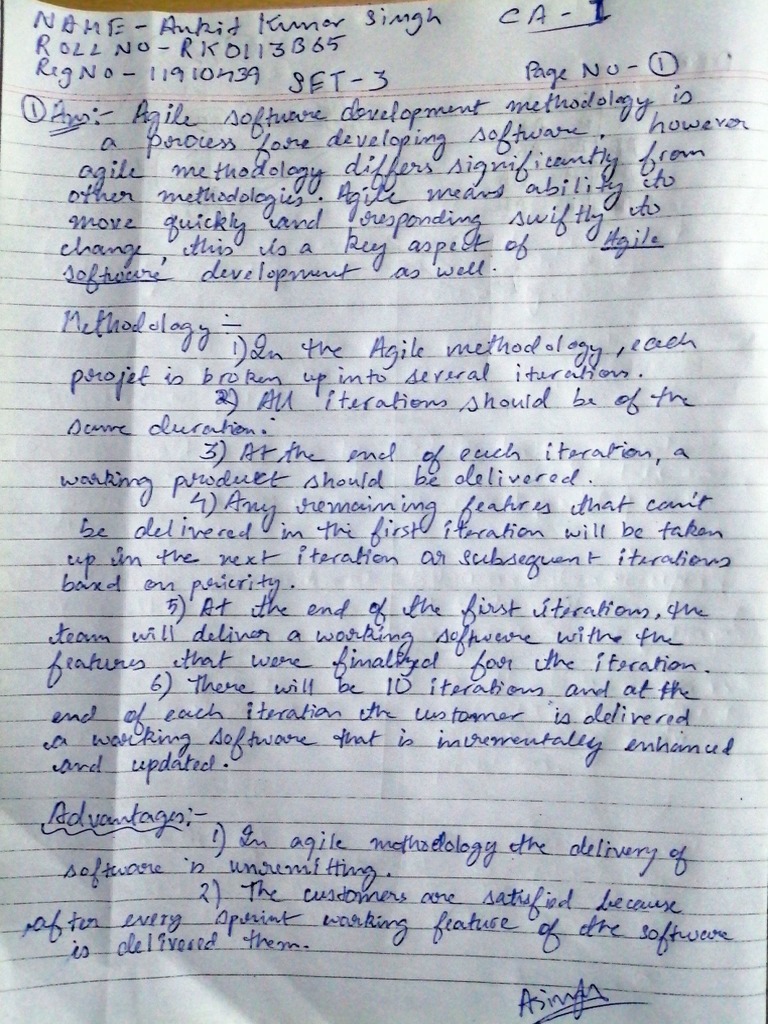 NAME - Ankit Kumar Singh CA - I
ROLL NO - RKO113B65
Reg No - 11910439 SET - 3 Page No - ①
① Ans:- Agile software development methodology is
a process fore developing software, however
agile methodology differs significantly from
other methodologies. Agile means ability to
move quickly and responding swiftly to
change, this is a key aspect of Agile
software development as well.
Methodology :-
1) In the Agile methodology, each
projet is broken up into several iterations.
2) All iterations should be of the
same duration.
3) At the end of each iteration, a
working product should be delivered.
4) Any remaining featires that can't
be delivered in the first iteration will be taken
up in the next iteration or subsequent iterations
based on priority.
5) At the end of the first iterations, the
team will deliver a working software withe the
features that were finalized for the iteration.
6) There will be 10 iterations and at the
end of each iteration the customer is delivered
a working software that is incrementally enhanced
and updated.
Advantages:-
1) In agile methodology the delivery of
software is unremitting.
2) The customers are satisfied because
after every sprint working feature of the software
is delivered them.
Asingh